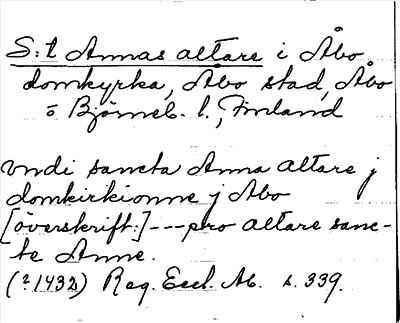 S:t Annas altare i Åbo
domkyrka, Åbo stad, Åbo
o Björneb. l., Finland
Vndi sancta Anna altare j
domkirkionne j Abo
[överskrift:] --- pro altare sanc-
te Anne.
(? 1432) Reg. Eccl. Ab. s. 339.